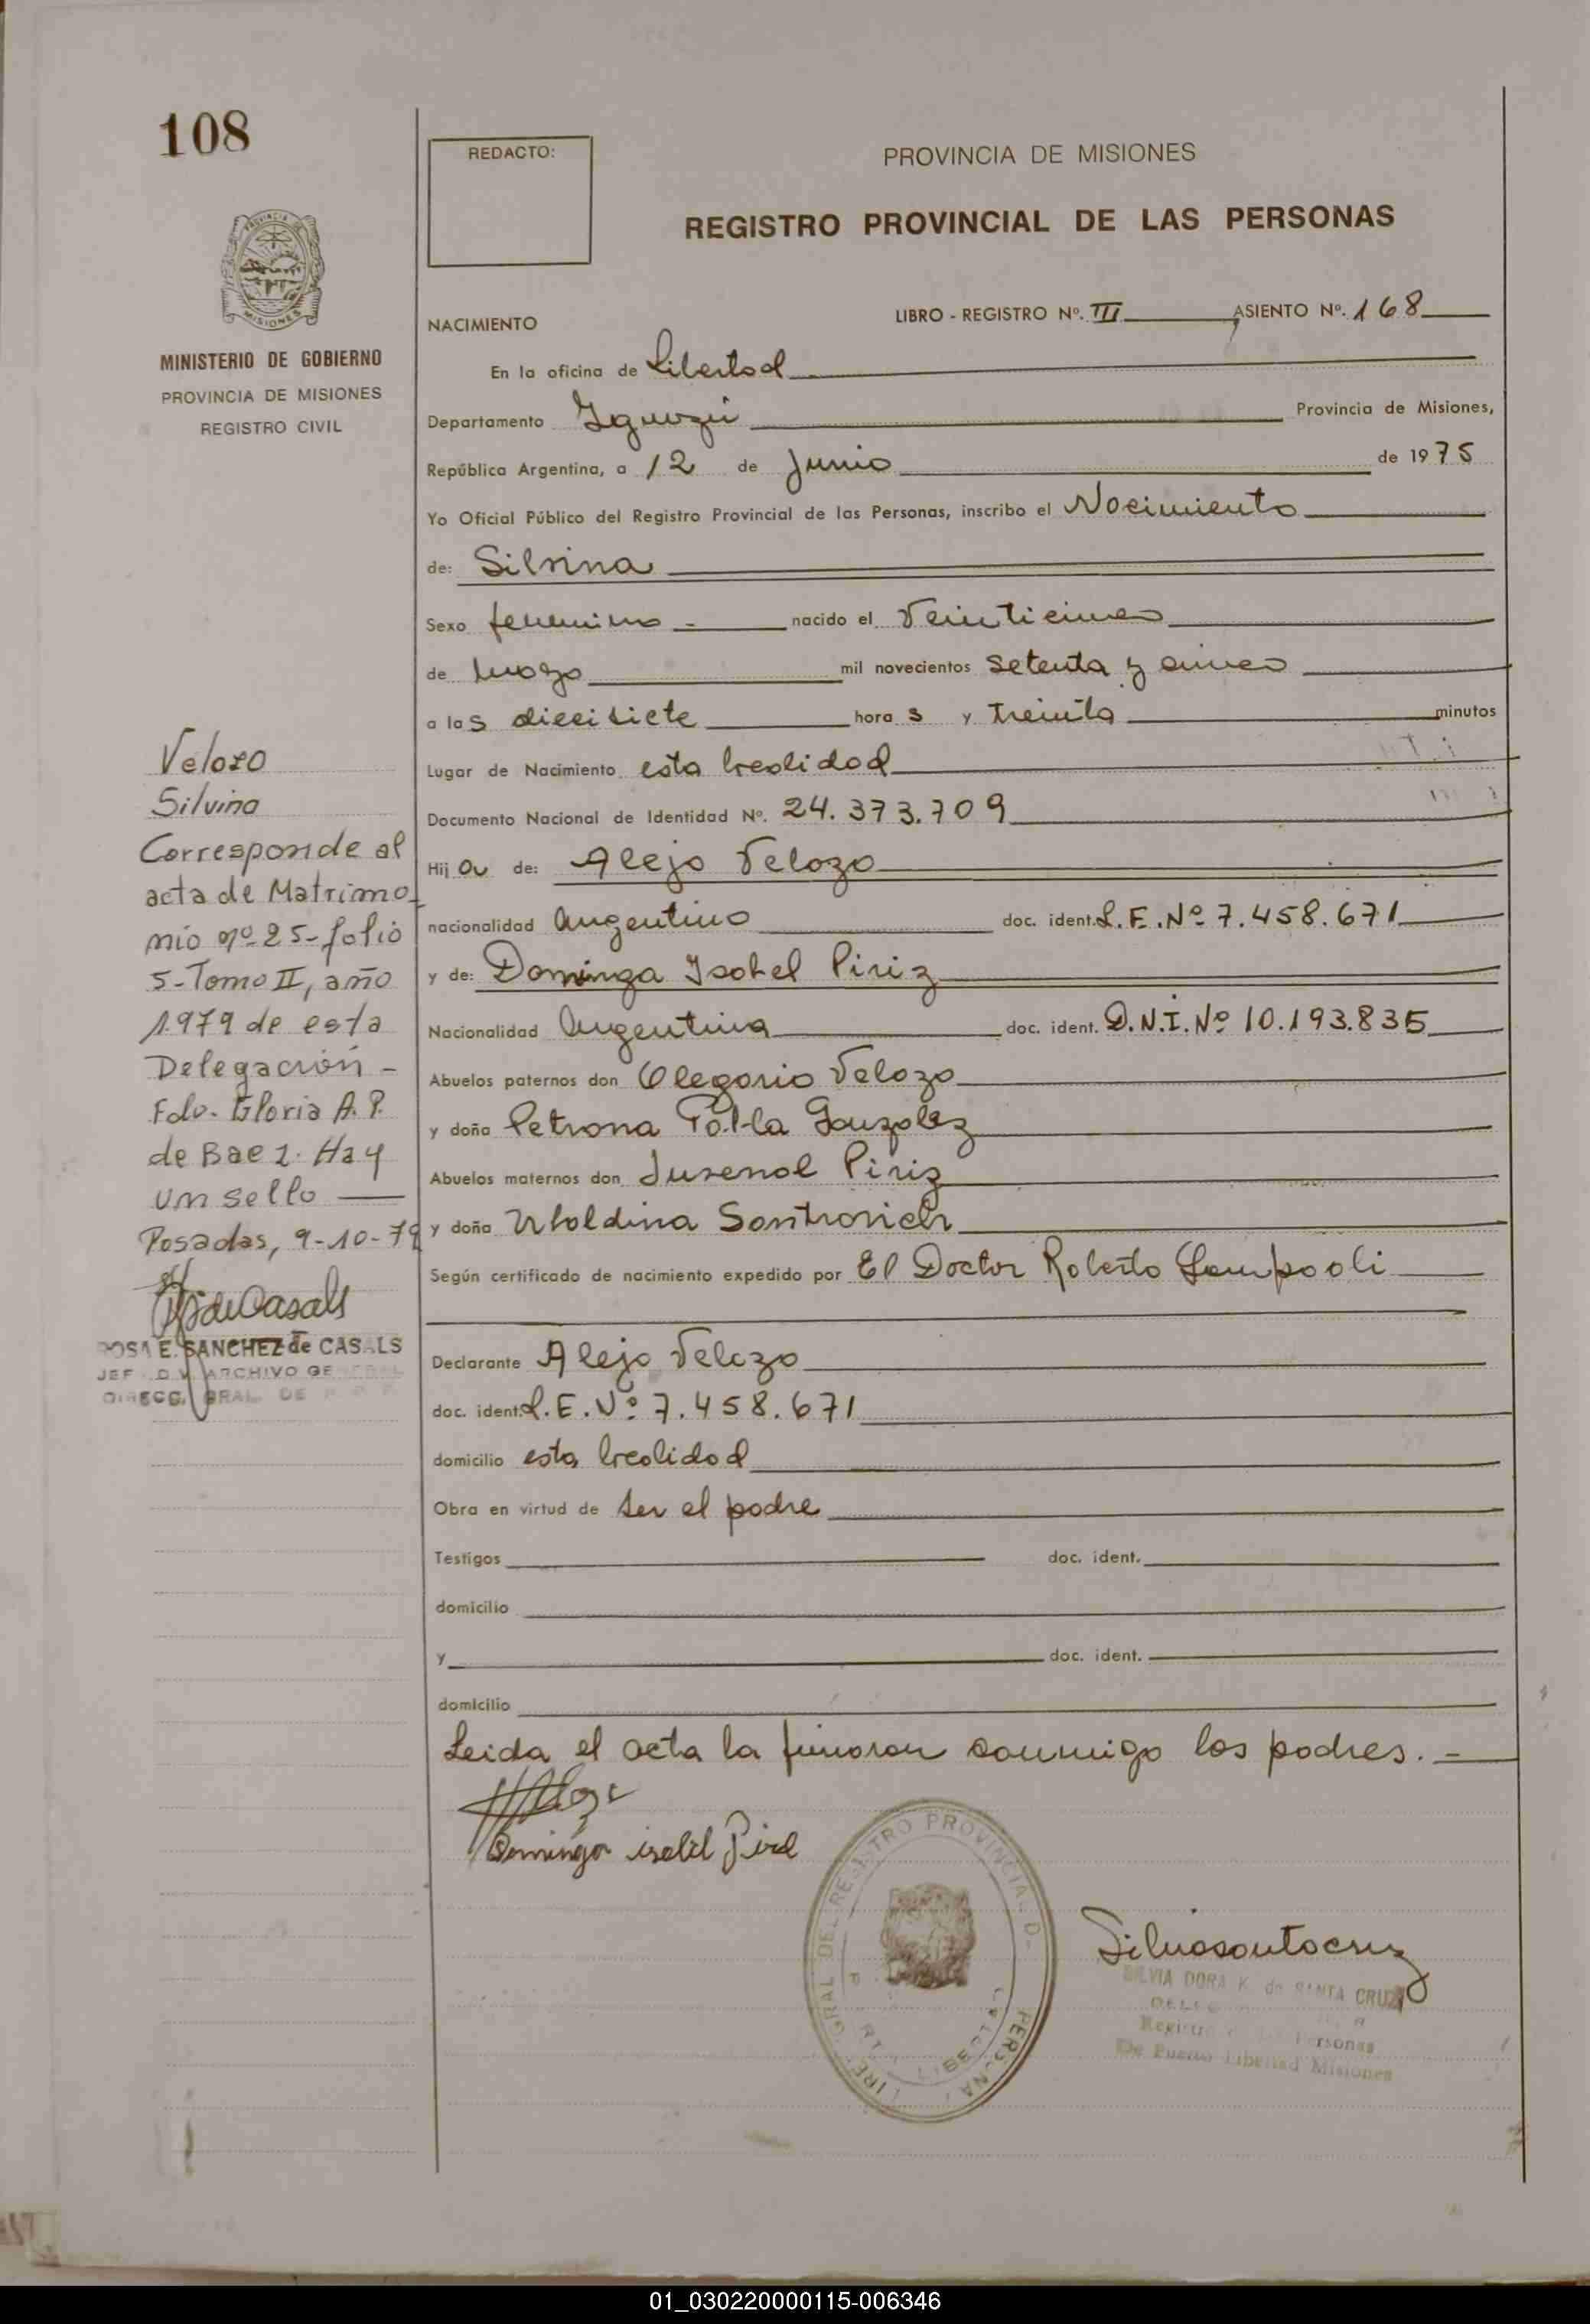 108
REDACTO:
PROVINCIA DE MISIONES
REGISTRO PROVINCIAL DE LAS PERSONAS
PROVINCIA DE
MISIONES
MINISTERIO DE GOBIERNO
PROVINCIA DE MISIONES
REGISTRO CIVIL
NACIMIENTO
LIBRO - REGISTRO Nº. III ASIENTO Nº. 168
En la oficina de Libertad
Departamento Iguazú Provincia de Misiones,
República Argentina, a 12 de Junio de 1975
Yo Oficial Público del Registro Provincial de las Personas, inscribo el Nacimiento
de: Silvina
Sexo femenino - nacido el Veinticinco
de marzo mil novecientos setenta y cinco
a las diecisiete horas y treinta minutos
Lugar de Nacimiento esta localidad
Documento Nacional de Identidad Nº. 24.373.709
Hija de: Alejo Velozo
nacionalidad argentino doc. ident. L.E.Nº 7.458.671
y de: Dominga Isabel Piriz
Nacionalidad Argentina doc. ident. D.N.I.Nº 10.193.835
Abuelos paternos don Olegario Velozo
y doña Petrona González
Abuelos maternos don Juvenal Piriz
y doña Ubaldina
Según certificado de nacimiento expedido por El Doctor Roberto
Declarante Alejo Velozo
doc. ident. L.E.Nº 7.458.671
domicilio esta localidad
Obra en virtud de ser el padre
Testigos doc. ident.
domicilio
y doc. ident.
domicilio
Leida el acta la firmaron conmigo los padres. -
Velozo
Silvina
Corresponde al
acta de Matrimo
nio nº 25-folio
5-Tomo II, año
1979 de esta
Delegación -
Fdo. Gloria A. P.
de Baez. Hay
un sello
Posadas, 9-10-79
ROSA E. SANCHEZ de CASALS
JEF DIV ARCHIVO GENERAL
DIRECC. GRAL. DE
Dominga
DEL REGISTRO PROVINCIAL
LIBERTAD
SILVIA DORA K. de SANTA CRUZ
Registro Personas
De Puerto Libertad Misiones
01_030220000115-006346